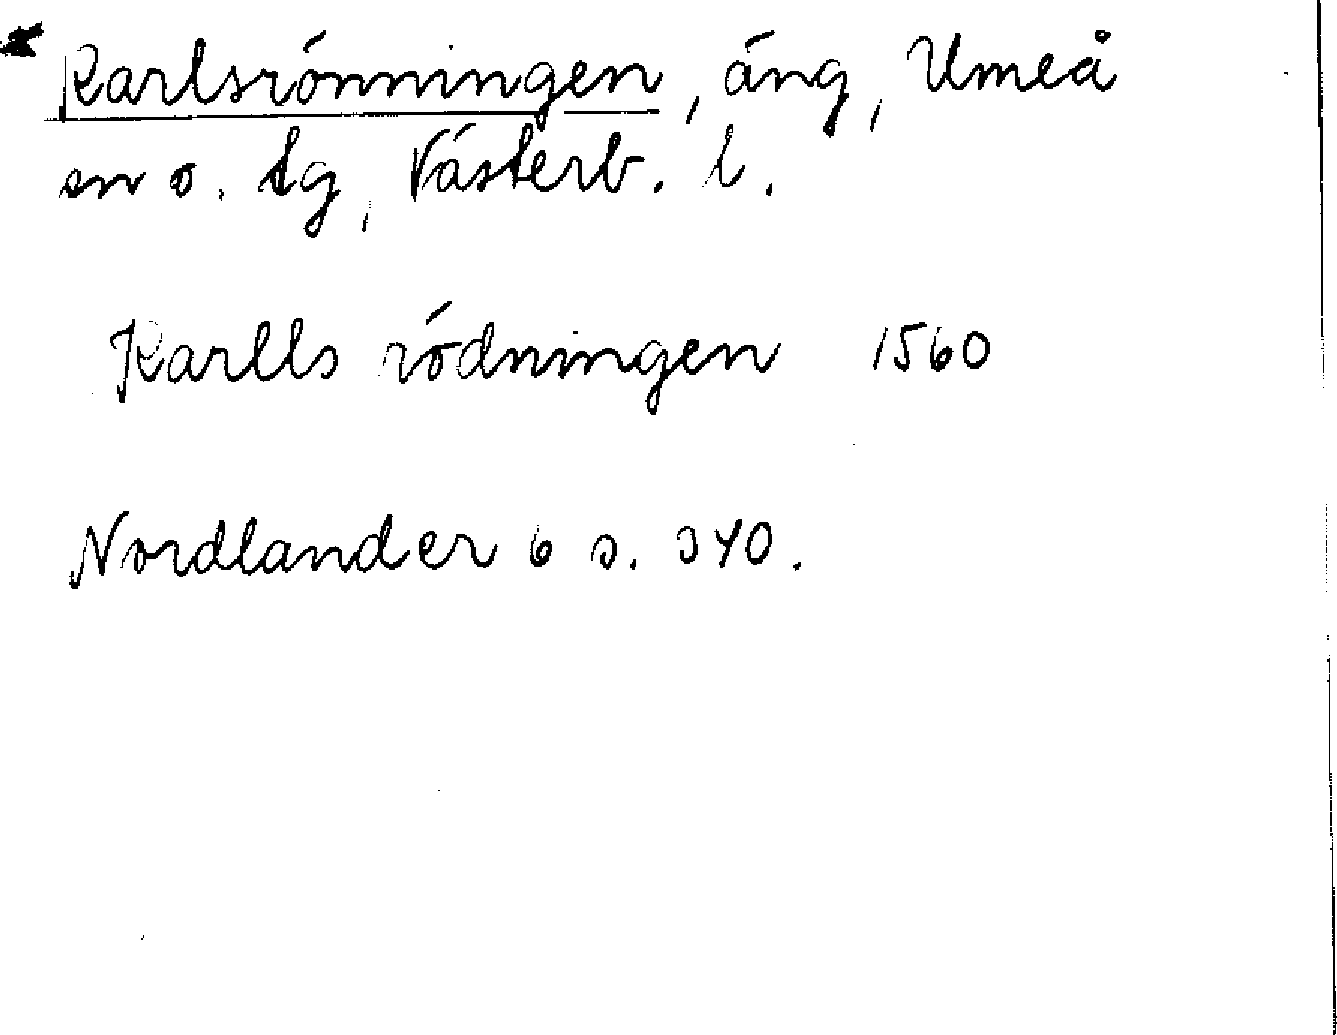 Karlsrönningen, äng, Umeå
sn o. tg, Västerb. l.
Karlls rödningen 1560
Nordlander 6 s. 340.